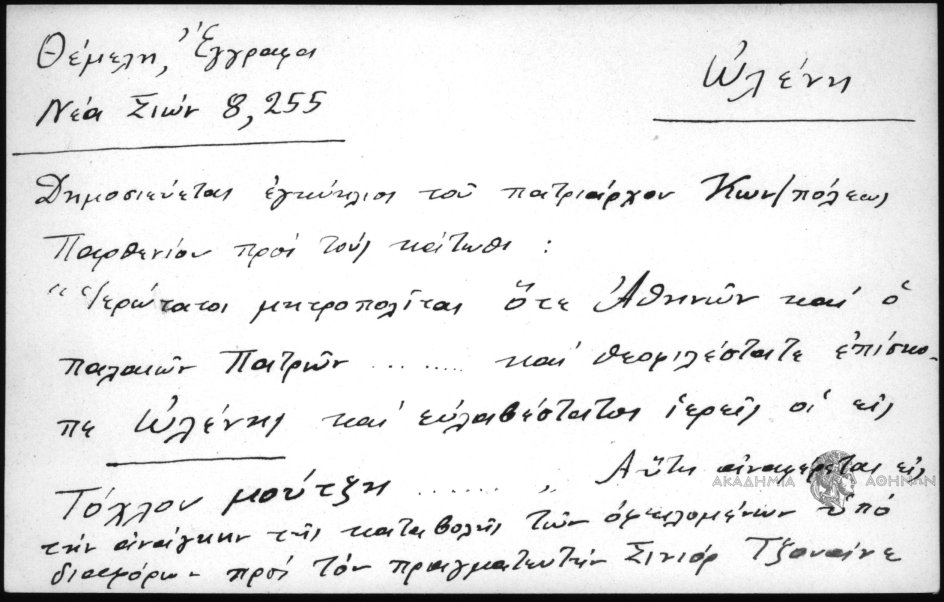 Θέμελη, Ἔγγραφα
Νέα Σιών 8, 255
Ὠλένη
Δημοσιεύεται ἐγκύκλιος τοῦ πατριάρχου Κων/πόλεως
Παρθενίου πρὸς τοὺς κάτωθι :
"Ἱερώτατοι μητροπολῖται ὅτε Ἀθηνῶν καὶ ὁ
παλαιῶν Πατρῶν ........ καὶ θεοφιλέστατε ἐπίσκο-
πε Ὠλένης καὶ εὐλαβέστατοι ἱερεῖς οἱ εἰς
Τόχλον μούτζη ...... " Αὕτη ἀναφέρεται εἰς
ΑΚΑΔΗΜΙΑ ΑΘΗΝΩΝ
τὴν ἀνάγκην τῆς καταβολῆς τῶν ὀφειλομένων ὑπὸ
διαφόρων πρὸς τὸν πραγματευτὴν Σινιόρ Τζουάνε